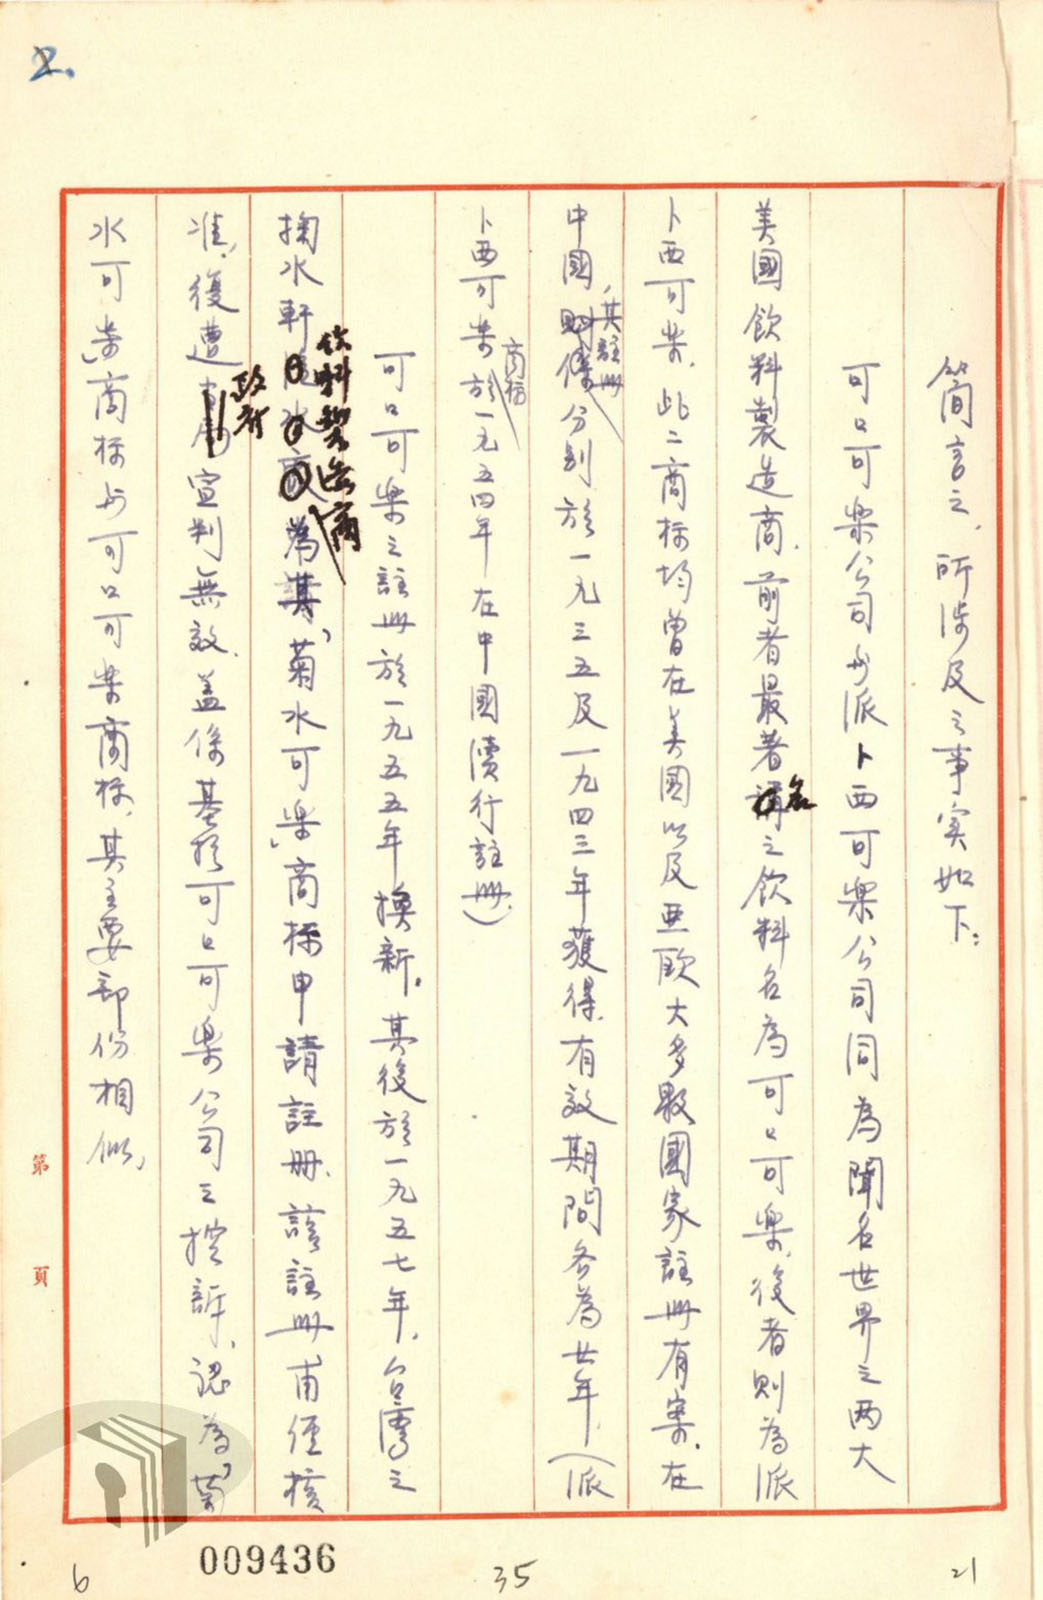 2.
簡言之，所涉及之事実如下：
可口可樂公司与派卜西可樂公司同為聞名世界之两大
美國飲料製造商．前者最著名之飲料名為可口可樂，後者則為派
卜西可樂．此二商标均曾在美國以及亜欧大多数國家註册有案．在
中國，其註册分别於一九三五及一九四三年獲得，有效期間各為廿年，（派
卜西可樂商标於一九五四年在中國續行註册。）
可口可樂之註册於一九五五年換新．其後於一九五七年，台灣之
掬水軒飲料製造商為其「菊水可樂」商标申請註册，該註册甫經核
准，後遭政府宣判無效．盖係基於可口可樂公司之控訴，認為「菊
水可樂」商标与可口可樂商标，其主要部份相似，
第
頁
6
009436
35
21